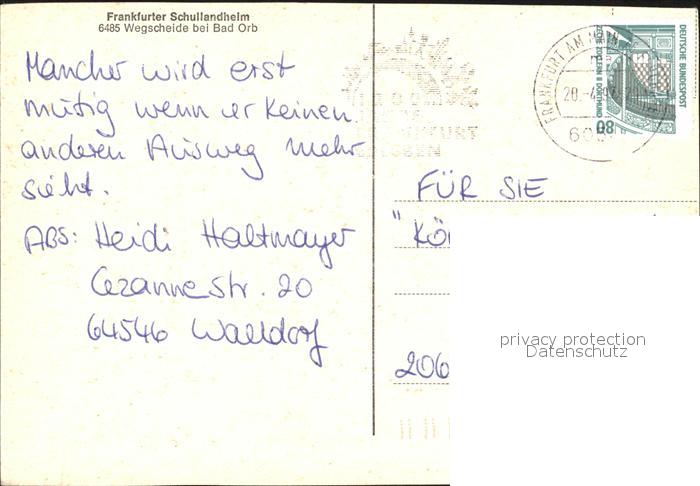 Frankfurter Schullandheim
6485 Wegscheide bei Bad Orb
Mancher wird erst
mutig wenn er keinen
anderen Ausweg mehr
sieht.
ABS: Heidi Haltmayer
Cezannestr. 20
64546 Walldorf
FRANKFURT AM MAIN
DEUTSCHE BUNDESPOST
ZECHE ZOLLERN II DORTMUND
80
FÜR SIE
"KÖ
206
privacy protection
Datenschutz